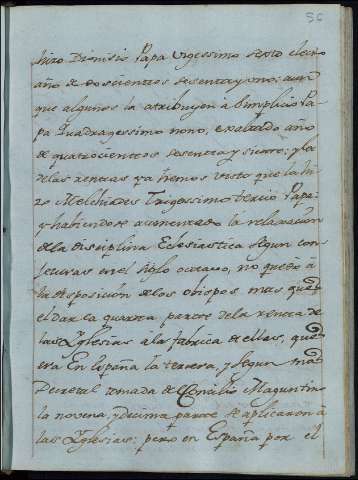 56
hizo Dionisio Papa vigessimo sexto electo
año de doscientos sesenta y uno: aun
que algunos la atribuyen à Simplicio Pa-
pa Quadragessimo nono, exaltado año
de quatrocientos sesenta y siete; y la
de las rentas ya hemos visto que la hi-
zo Melchiades Trigessimo tercio Papa
y habiendose aumentado la relaxacion
de la disciplina Eclesiastica segun con
jeturas en el siglo octavo, no quedò à
la disposicion de los obispos mas que
el dar la quarta parte de la renta de
las Yglesias à la fabrica de ellas, que
era En España la tercera, y segun una
Decretal tomada de Concilio Maguntino
la novena, y decima parte se aplicaron à
las Yglesias: pero en España por el